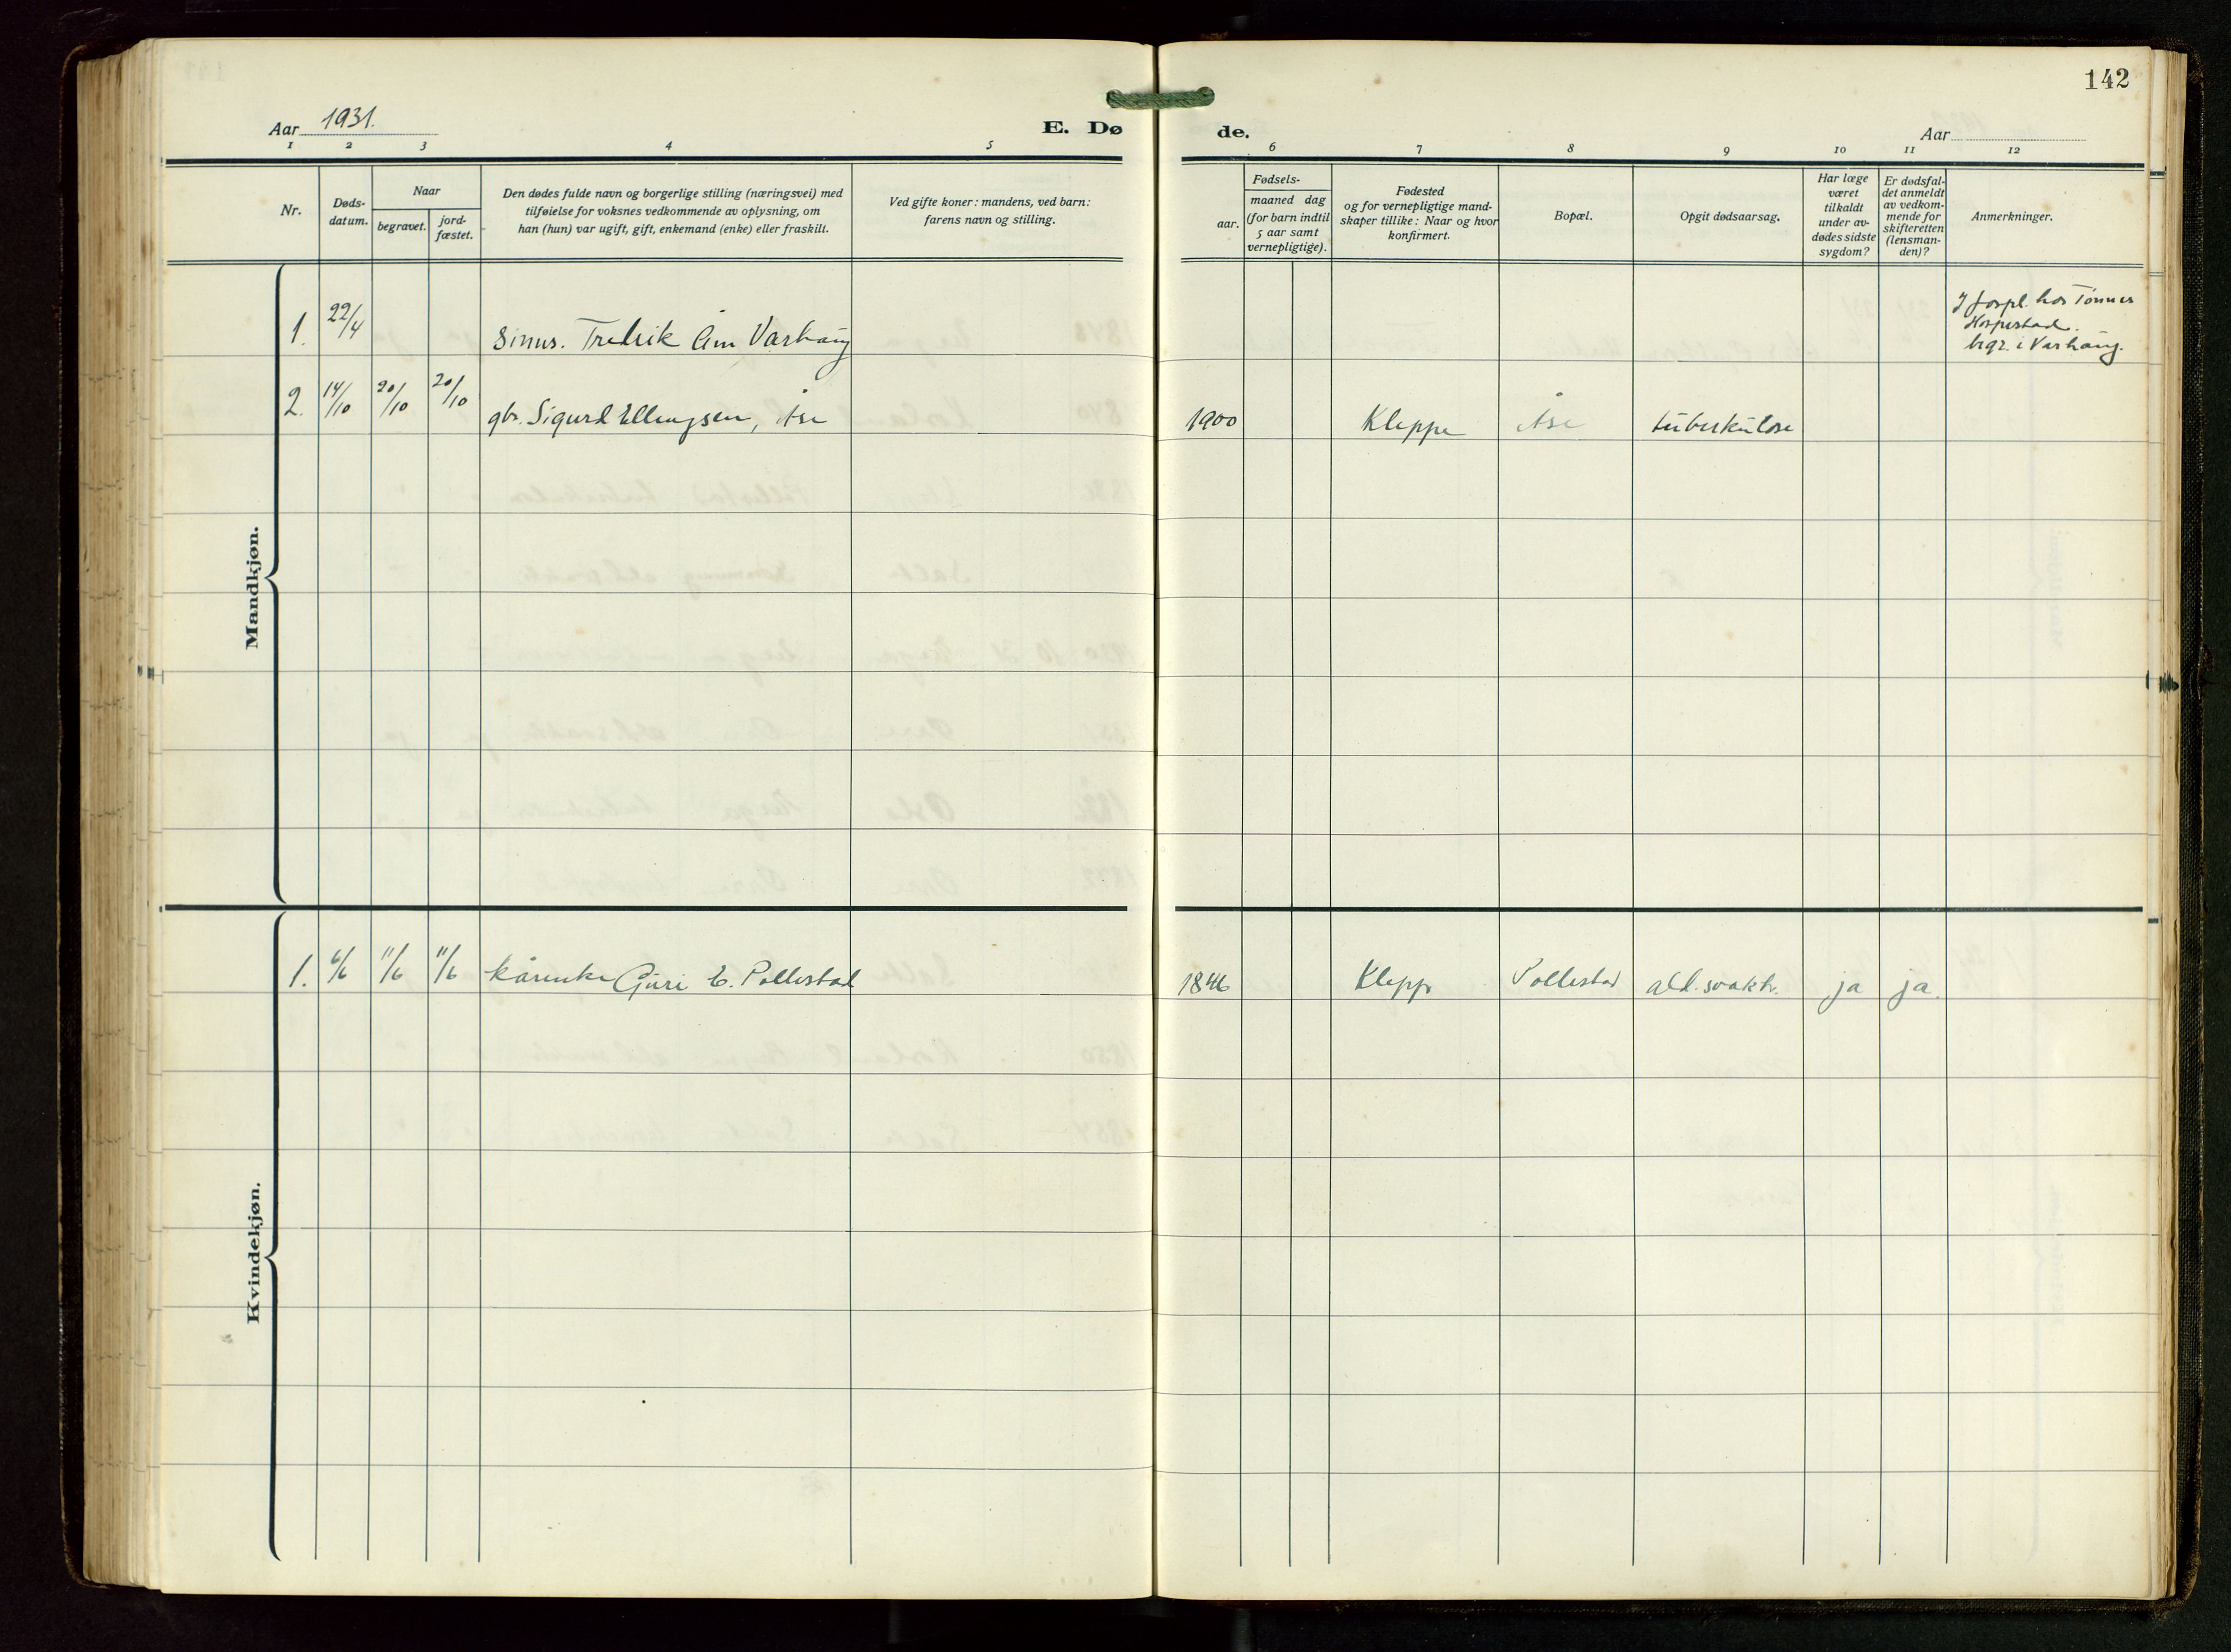 142
Aar 1931.
E. Døde.
Aar
1 2 3 4 5 6 7 8 9 10 11 12
Nr.
Døds-
datum.
Naar
begravet.
jord-
fæstet.
Den dødes fulde navn og borgerlige stilling (næringsvei) med
tilføielse for voksnes vedkommende av oplysning, om
han (hun) var ugift, gift, enkemand (enke) eller fraskilt.
Ved gifte koner: mandens, ved barn:
farens navn og stilling.
Fødsels-
aar.
maaned dag
(for barn indtil
5 aar samt
vernepligtige).
Fødested
og for vernepligtige mand-
skaper tillike: Naar og hvor
konfirmert.
Bopæl.
Opgit dødsaarsag.
Har læge
været
tilkaldt
under av-
dødes sidste
sygdom?
Er dødsfal-
det anmeldt
av vedkom-
mende for
skifteretten
(lensman-
den)?
Anmerkninger.
Mandkjøn.
1. 22/4 Fredrik Varhaug
hos Tønnes
i Varhaug.
2. 14/10 20/10 20/10 gbr. Sigurd Ellingsen, Åse 1900 Kleppe Åse tuberkulose
Kvindekjøn.
1. 6/6 11/6 11/6 kårenke Guri E. Pollestad 1846 Klepp Pollestad ald. svakh. ja ja.